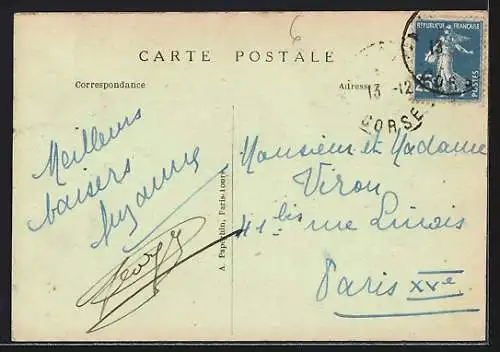 CARTE POSTALE
Correspondance
Adresse
REPUBLIQUE FRANÇAISE
POSTES
13 -12
CORSE
Meilleurs
baisers
Suzanne
Georges
Monsieur et Madame
Viron
41 bis rue Linois
Paris XVe
A. Papghin, Paris-Tours